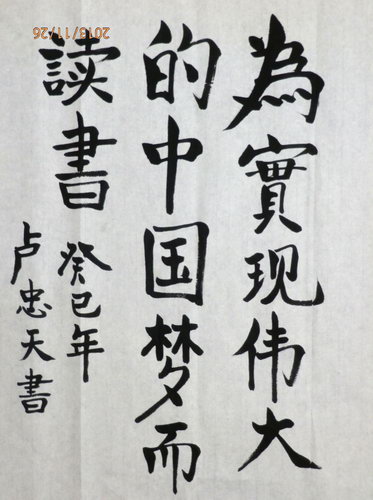 為實现伟大
的中国梦而
读書
癸巳年
卢忠天書
2013/11/26